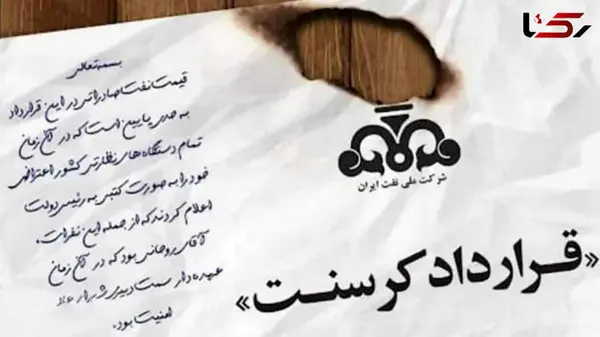 رکنا
بسمه تعالی
قیمت نفت صادراتی در این قرارداد
به حدی پایین است که در آن زمان
تمام دستگاه‌های نظارتی کشور اعتراض
خود را به صورت کتبی به رئیس دولت
اعلام کردند که از جمله این نفرات،
آقای روحانی بود که در آن زمان
عهده‌دار سمت دبیری شورای عالی
امنیت بود.
شرکت ملی نفت ایران
«قرارداد کرسنت»